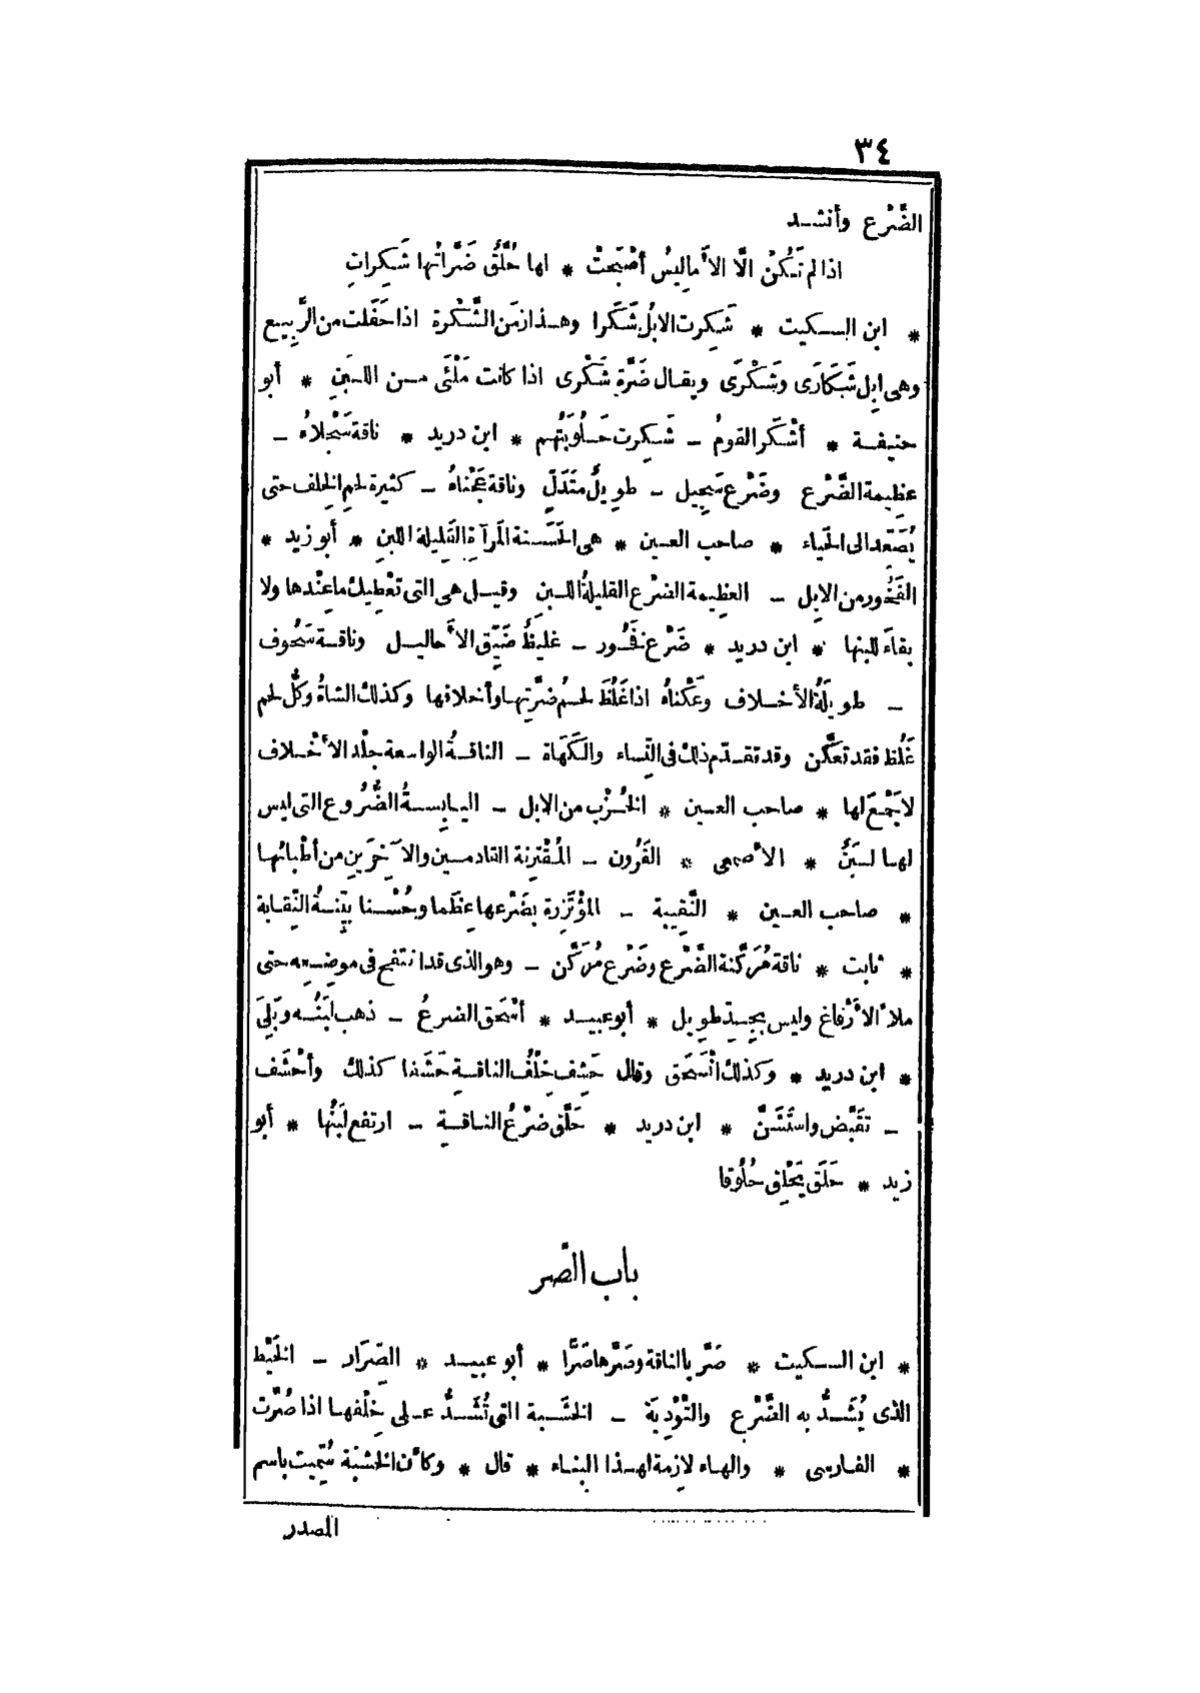 ٣٤
الضَّرْع وأنشد
اذا لم تَكُنْ الَّا الأَمالِيسُ أصْبَحتْ * لها حُلَّقٌ ضَرَّاتُها شَكِراتِ
* ابن السكيت * شَكِرت الابلُ شَكَرا وهذا زمَن الشَّكْرة اذا حَفَلت من الرَّبِيع
وهى ابِل شَكَارَى وشَكْرَى ويقال ضَرَّة شَكْرى اذا كانت مَلْئَى من اللبَن * أبو
حنيفة * أشْكَر القومُ - شَكِرت حَلُوبَتُهم * ابن دريد * ناقة سَجْلاءُ -
عظِيمة الضَّرْع وضَرْع سَجِيل - طوِيلٌ متَدَلٍّ وناقة عَجْناءُ - كثيرة لحم الخِلف حتى
يُصَعِّد الى الحَياء * صاحب العين * هى الحَسَنة المَرآة القَلِيلة اللبن * أبو زيد *
الفَخُور من الابِل - العظِيمة الضرْع القليلةُ اللبن وقيل هى التى تعْطِيك ما عِنْدها ولا
بقاءَ للبنها * ابن دريد * ضَرْع فَخُور - غليظٌ ضَيّق الأَحاليل وناقة سَحُوف
- طوِيلَةُ الأخلاف وعَكْناءُ اذا غَلُظَ لحمُ ضَرَّتها وأخلافها وكذلك الشاةُ وكُلُّ لحم
غَلُظ فقد تعَكَّن وقد تقدّم ذلك فى النِّساء والكَهَاة - الناقةُ الواسعة جِلْد الأَخْلاف
لا يَجْمَعُ لها * صاحب العين * الخُزْب من الابل - اليابسةُ الضُّرُوع التى ليس
لها لبَنٌ * الأصمعى * القَرُون - المُقْترِنة القادمين والآخَرَين من أطْبائها
* صاحب العين * النَّقِيبة - المؤْتَزِرة بضَرْعها عِظَما وحُسْنا بيِّنةُ النِّقابة
* ثابت * ناقة مُرَكَّنة الضَّرْع وضَرْع مُرَكَّن - وهو الذى قد انتفخ فى موضِعه حتى
ملأ الأَرْفاغ وليس بجِدِّ طوِيل * أبو عبيد * أسْحَق الضرعُ - ذهب لبَنُه وبَلِىَ
* ابن دريد * وكذلك انْسَحَق وقال حَشِف خِلْفُ الناقةِ حَشَفا كذلك وأحْشَف
- تقَبَّض واستَشَنَّ * ابن دريد * حَلَّق ضَرْعُ الناقة - ارتفع لَبَنُها * أبو
زيد * حَلَق يَحْلِق حُلُوقا
باب الصّر
* ابن السكيت * صَرَّ بالناقة وصَرَّها صَرًّا * أبو عبيد * الصِّرَار - الخَيْط
الذى يُشَدُّ به الضَّرْع والتَّوْدِيَة - الخشَبة التى تُشَدُّ على خِلْفها اذا صُرَّت
* الفارسى * والهاء لازمة لهذا البِناء * قال * وكأن الخشبَة سُمِّيت باسم
المصدر